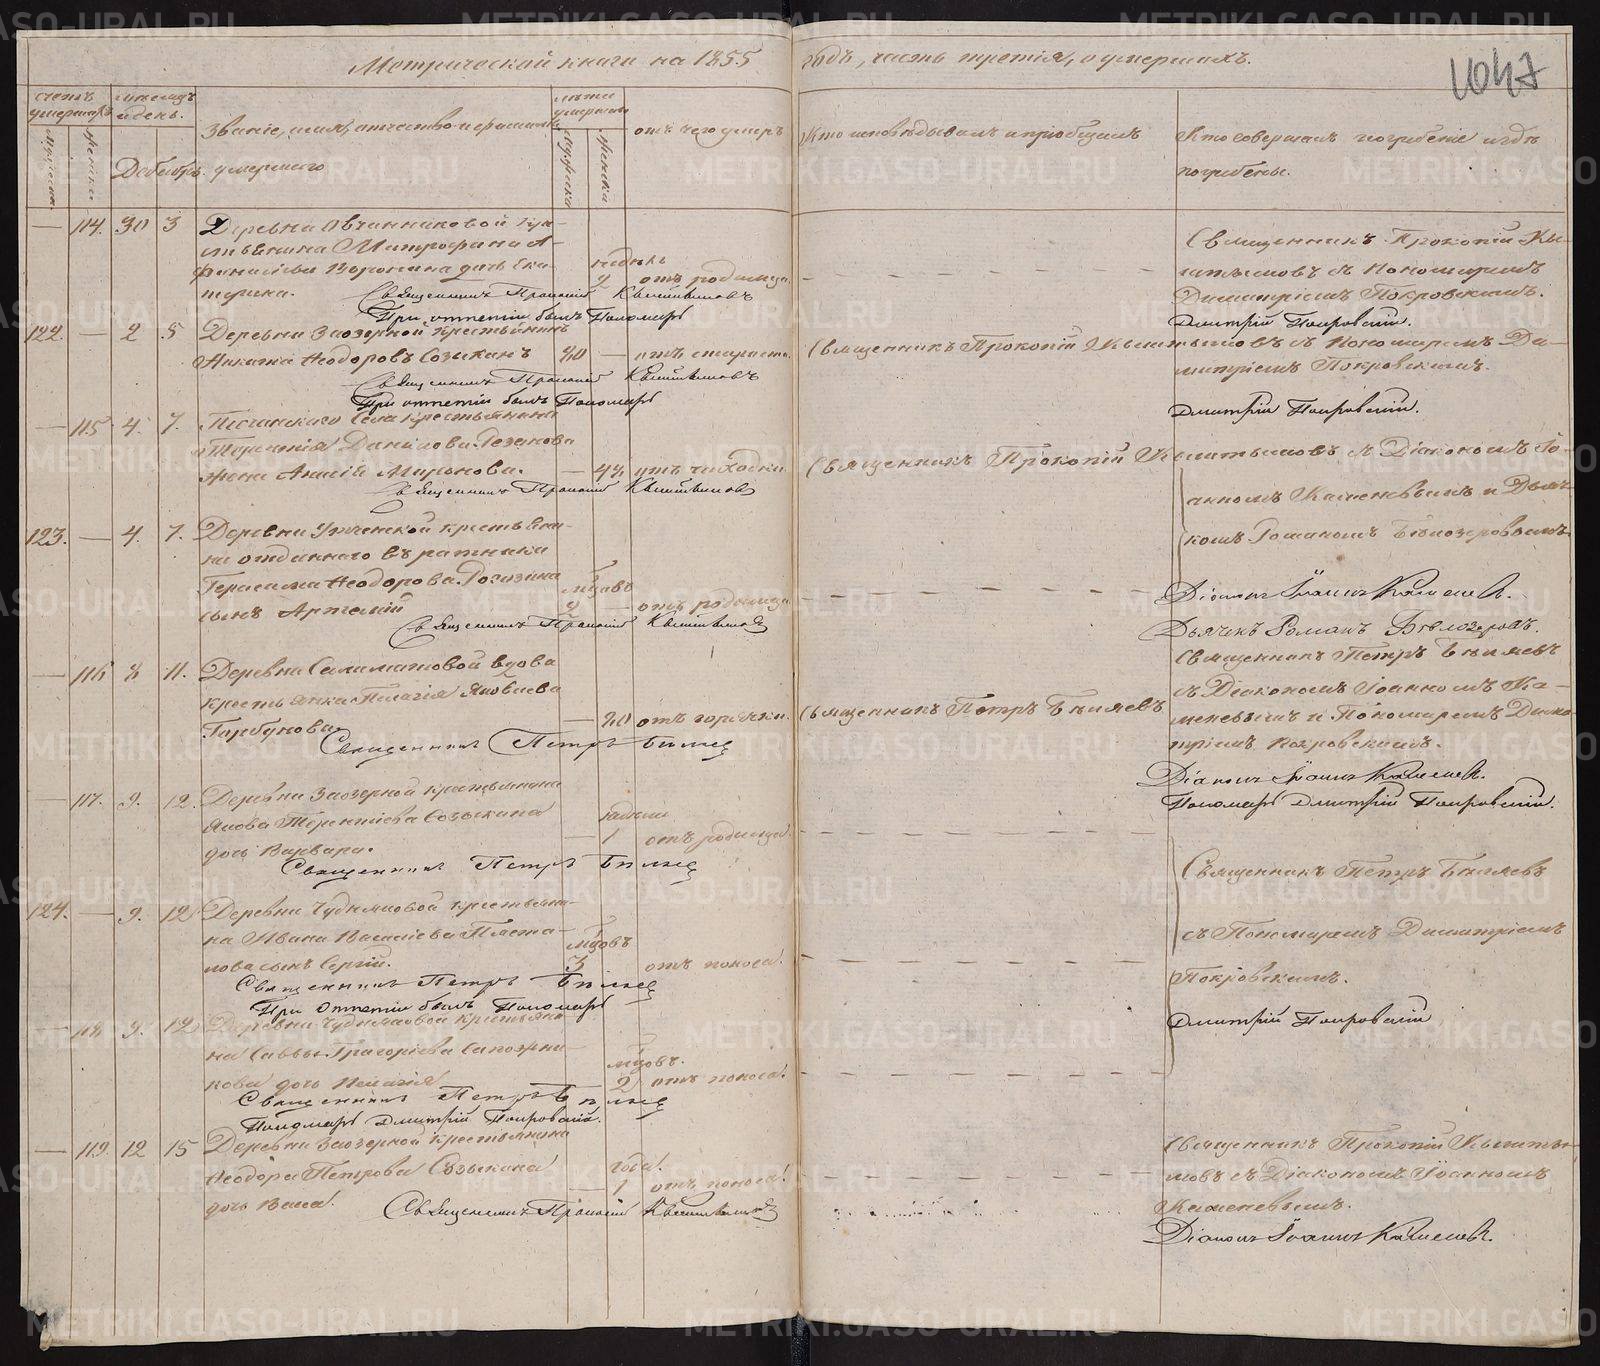 Метрической книги на 1855 годъ, часть третія, о умершихъ.
1047
счетъ умершихъ
мужеска
женска
мѣсяцъ и день.
Декабрь
Званіе, имя, отчество и фамилія умершаго
лѣта умершаго
мужеска
женска
отъ чего умеръ
Кто исповѣдывалъ и пріобщалъ
Кто совершалъ погребеніе и гдѣ погребены.
— 114. 30 3 Деревни Овчинниковой кре-
стьянина Митрофана А-
фанасьева Воронина дочь Ека-
терина.
недѣль 2 отъ родимца
Священникъ Прокопій Кыштымовъ съ Пономаремъ Димитріемъ Покровскимъ.
Священникъ Прокопій Кыштымовъ
При отпетіи былъ Пономарь Дмитрій Покровскій.
122. — 2 5 Деревни Заозерной крестьянинъ
Никита Ѳеодоровъ Созыкинъ 80 — отъ старости
Священникъ Прокопій Кыштымовъ съ Пономаремъ Ди-
митріемъ Покровскимъ.
Священникъ Прокопій Кыштымовъ
При отпетіи былъ Пономарь Дмитрій Покровскій.
— 115 4. 7. Песчанскаго села крестьянина
Терентія Данилова
жена Маркова. — 47. отъ чихотки
Священникъ Прокопій Кыштымовъ съ Діакономъ Іо-
анномъ Каменевымъ и Дьяч-
комъ Романомъ Бѣлозеровымъ
Священникъ Прокопій Кыштымовъ
123. — 4. 7. Деревни крестьяни-
на отданнаго въ ратники
Герасима Ѳеодорова Рогозина
сынъ Артемій
мѣцовъ — отъ родимца
Діаконъ Іоаннъ Каменевъ.
Дьячекъ Романъ Бѣлозеровъ.
Священникъ Прокопій Кыштымовъ
— 116 8 11. Деревни Саламатовой вдова
крестьянка Пелагія Яковлева
Горбунова — 80 отъ горячки.
Священникъ Петръ Бѣляевъ
Священникъ Петръ Бѣляевъ
съ Діакономъ Іоанномъ Ка-
меневымъ и Пономаремъ Дими-
тріемъ Покровскимъ.
Священникъ Петръ Бѣляевъ
Діаконъ Іоаннъ Каменевъ.
Пономарь Дмитрій Покровскій.
— 117. 9. 12. Деревни Заозерной крестьянина
Якова Терентіева Созыкина
дочь Варвара. — 1 отъ родимца.
Священникъ Петръ Бѣляевъ
Священникъ Петръ Бѣляевъ
съ Пономаремъ Димитріемъ
Покровскимъ.
124. — 9. 12 Деревни Чудиновой крестьяни-
на Ивана Василіева
сынъ Сергій.
мѣцовъ 3 отъ поноса.
Священникъ Петръ Бѣляевъ
При отпетіи былъ Пономарь Дмитрій Покровскій
— 118 9. 12 Деревни Чудиновой крестьяни-
на Саввы Григоріева Сапожни-
кова дочь Пелагія
мѣцовъ. 2 отъ поноса.
Священникъ Петръ Бѣляевъ
Пономарь Дмитрій Покровскій.
— 119 12 15 Деревни Заозерной крестьянина
Ѳеодора Петрова Созыкина
дочь Васса.
года. — 1 отъ поноса.
Священникъ Прокопій Кышты-
мовъ съ Діакономъ Іоанномъ
Каменевымъ.
Священникъ Прокопій Кыштымовъ
Діаконъ Іоаннъ Каменевъ.
METRIKI.GASO-URAL.RU